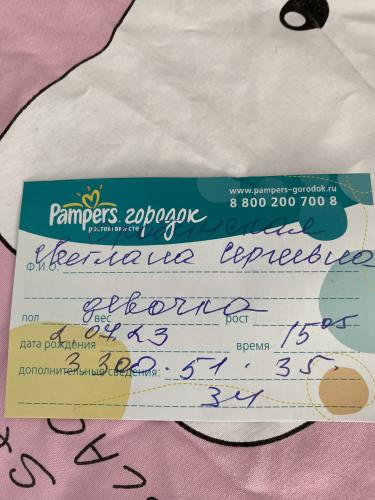 www.pampers-gorodok.ru
Pampers городок
8 800 200 700 8
растем вместе
Ф.И.О. Светлана Сергеевна
девочка
пол вес рост
2.07.23 15 05
дата рождения время
3 300. 51. 35.
дополнительные сведения:
34